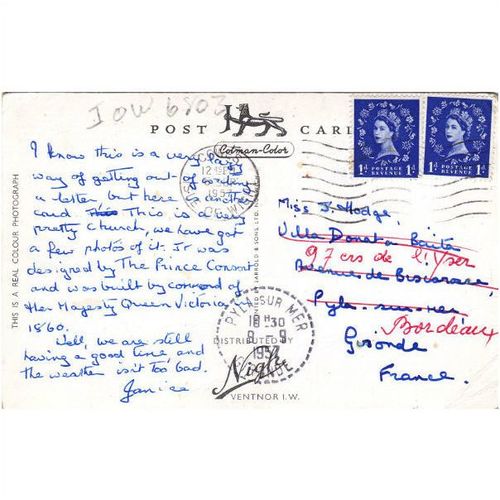 IOW 6803
POST CARD
Cotman-Color
I know this is a very lazy
way of getting out of
a letter, but here is another
card. This is a very
pretty church, we have got
a few photos of it. It was
designed by The Prince Consort
and was built by command of
Her Majesty Queen Victoria
1860.
Well, we are still
having a good time and
the weather isn't too bad.
Janice
THIS IS A REAL COLOUR PHOTOGRAPH
JARROLD & SONS LTD.
1957
POSTAGE REVENUE
1d 1d
POSTAGE REVENUE
1d 1d
Miss J. Hodge,
Villa Donat
97 crs de l'Yser
Avenue de Biscarosse,
Pyla-sur-Mer
Bordeaux
Gironde
France.
PYLA SUR MER
18H30
-9
1957
GIRONDE
DISTRIBUTED BY
Nigh
VENTNOR I.W.